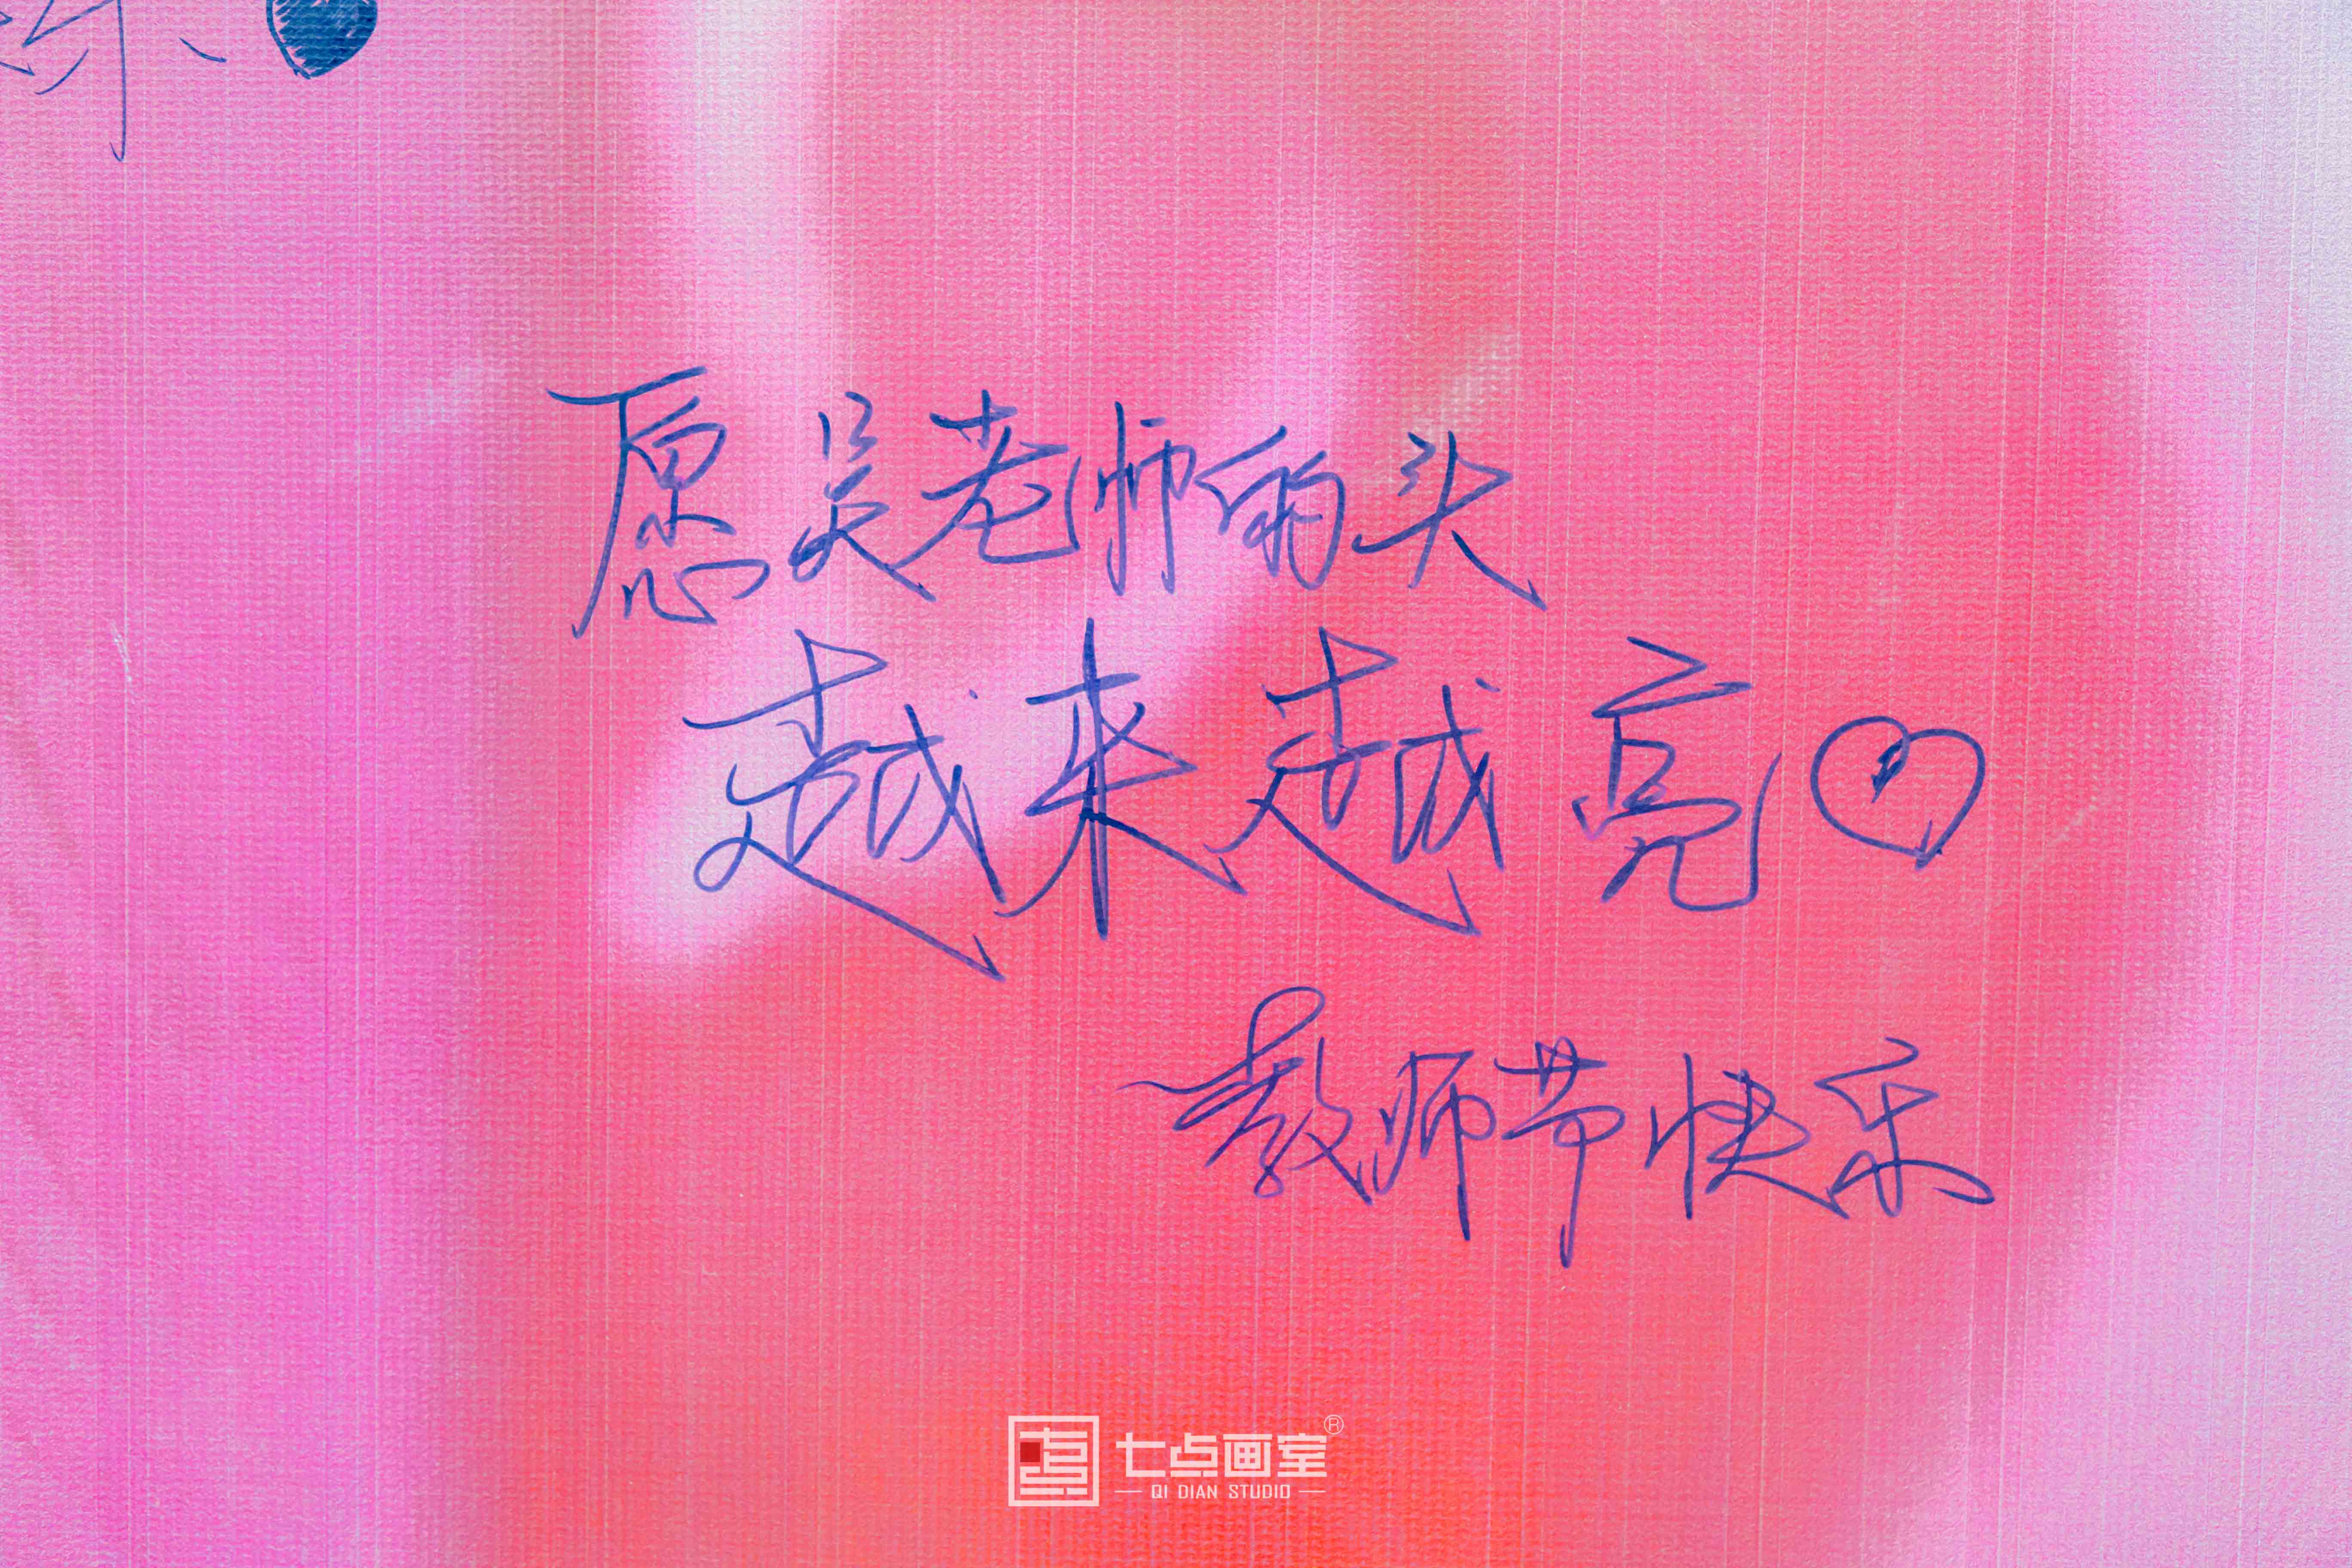 乐
愿吴老师的头
越来越亮
教师节快乐
七点画室®
QI DIAN STUDIO